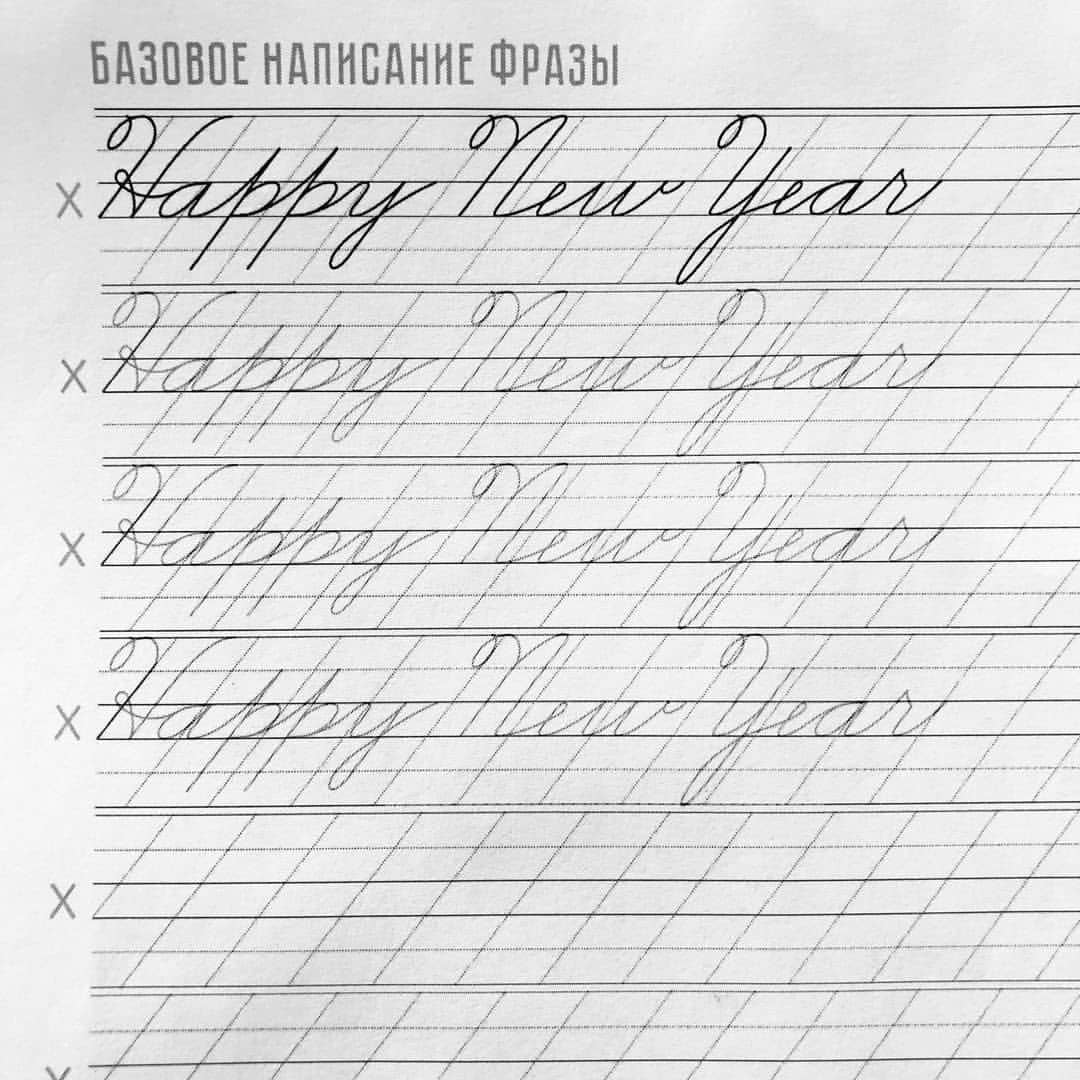 БАЗОВОЕ НАПИСАНИЕ ФРАЗЫ
x Happy New Year
x Happy New Year
x Happy New Year
x Happy New Year
x
x